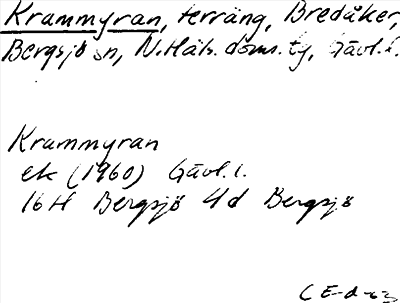 Krammyran, terräng, Bredåker,
Bergsjö sn, N. Häls. doms. tg, Gävl. l.
Krammyran
ek (1960) Gävl. l.
16H Bergsjö 4d Bergsjö